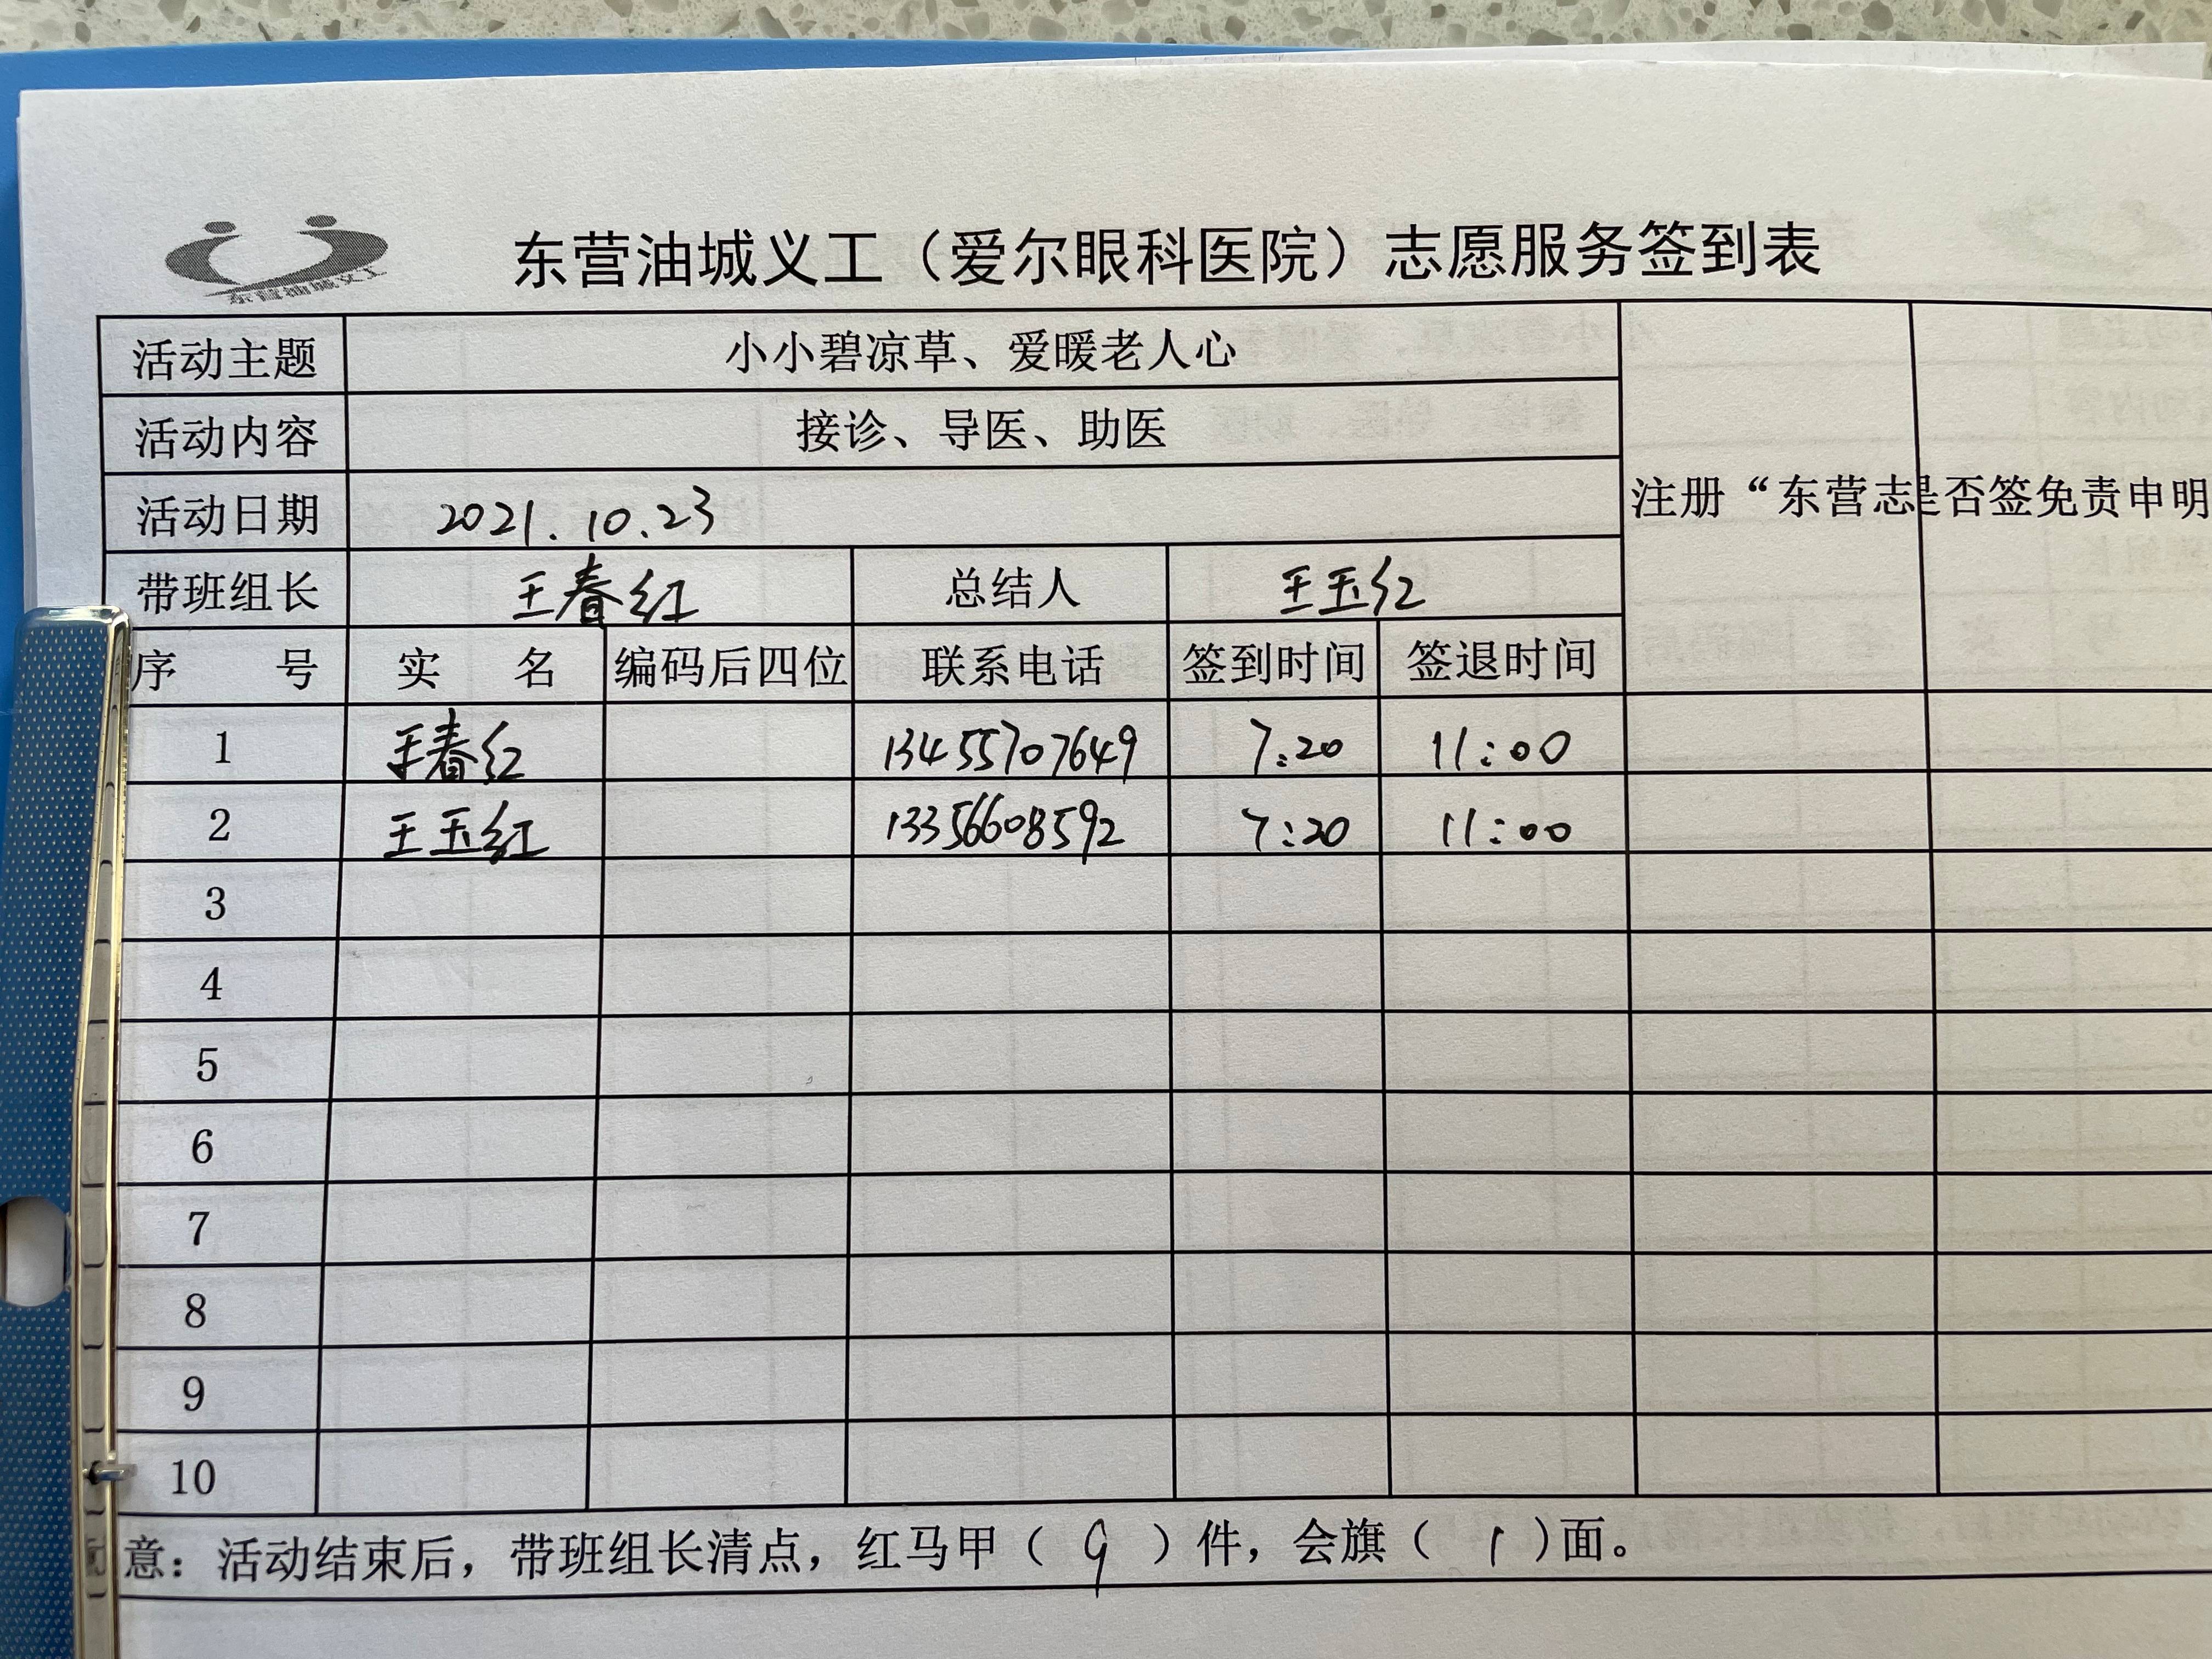 东营油城义工
东营油城义工（爱尔眼科医院）志愿服务签到表
活动主题 小小碧凉草、爱暖老人心
活动内容 接诊、导医、助医
活动日期 2021.10.23 注册“东营志 是否签免责申明
带班组长 王春红 总结人 王玉红
序号 实名 编码后四位 联系电话 签到时间 签退时间
1 王春红 13455707649 7:20 11:00
2 王玉红 13356608592 7:20 11:00
3
4
5
6
7
8
9
10
意：活动结束后，带班组长清点，红马甲（9）件，会旗（1）面。